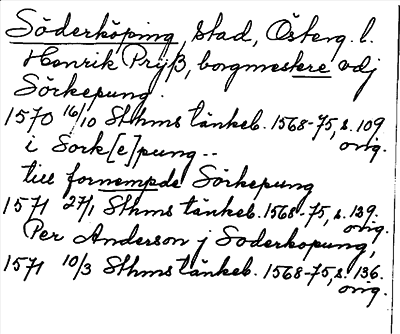 Söderköping, stad, Österg. l.
Henrik Prÿß, borgmestere vdj
Sörkepung.
1570 16/10 Sthms tänkeb. 1568-75, s. 109
orig.
i Sork[e]pung--
till fornempde Sörkepung
1571 27/1 Sthms tänkeb. 1568-75, s. 129.
orig.
Per Anderson j Soderkopung,
1571 10/3 Sthms tänkeb. 1568-75, s. 136.
orig.